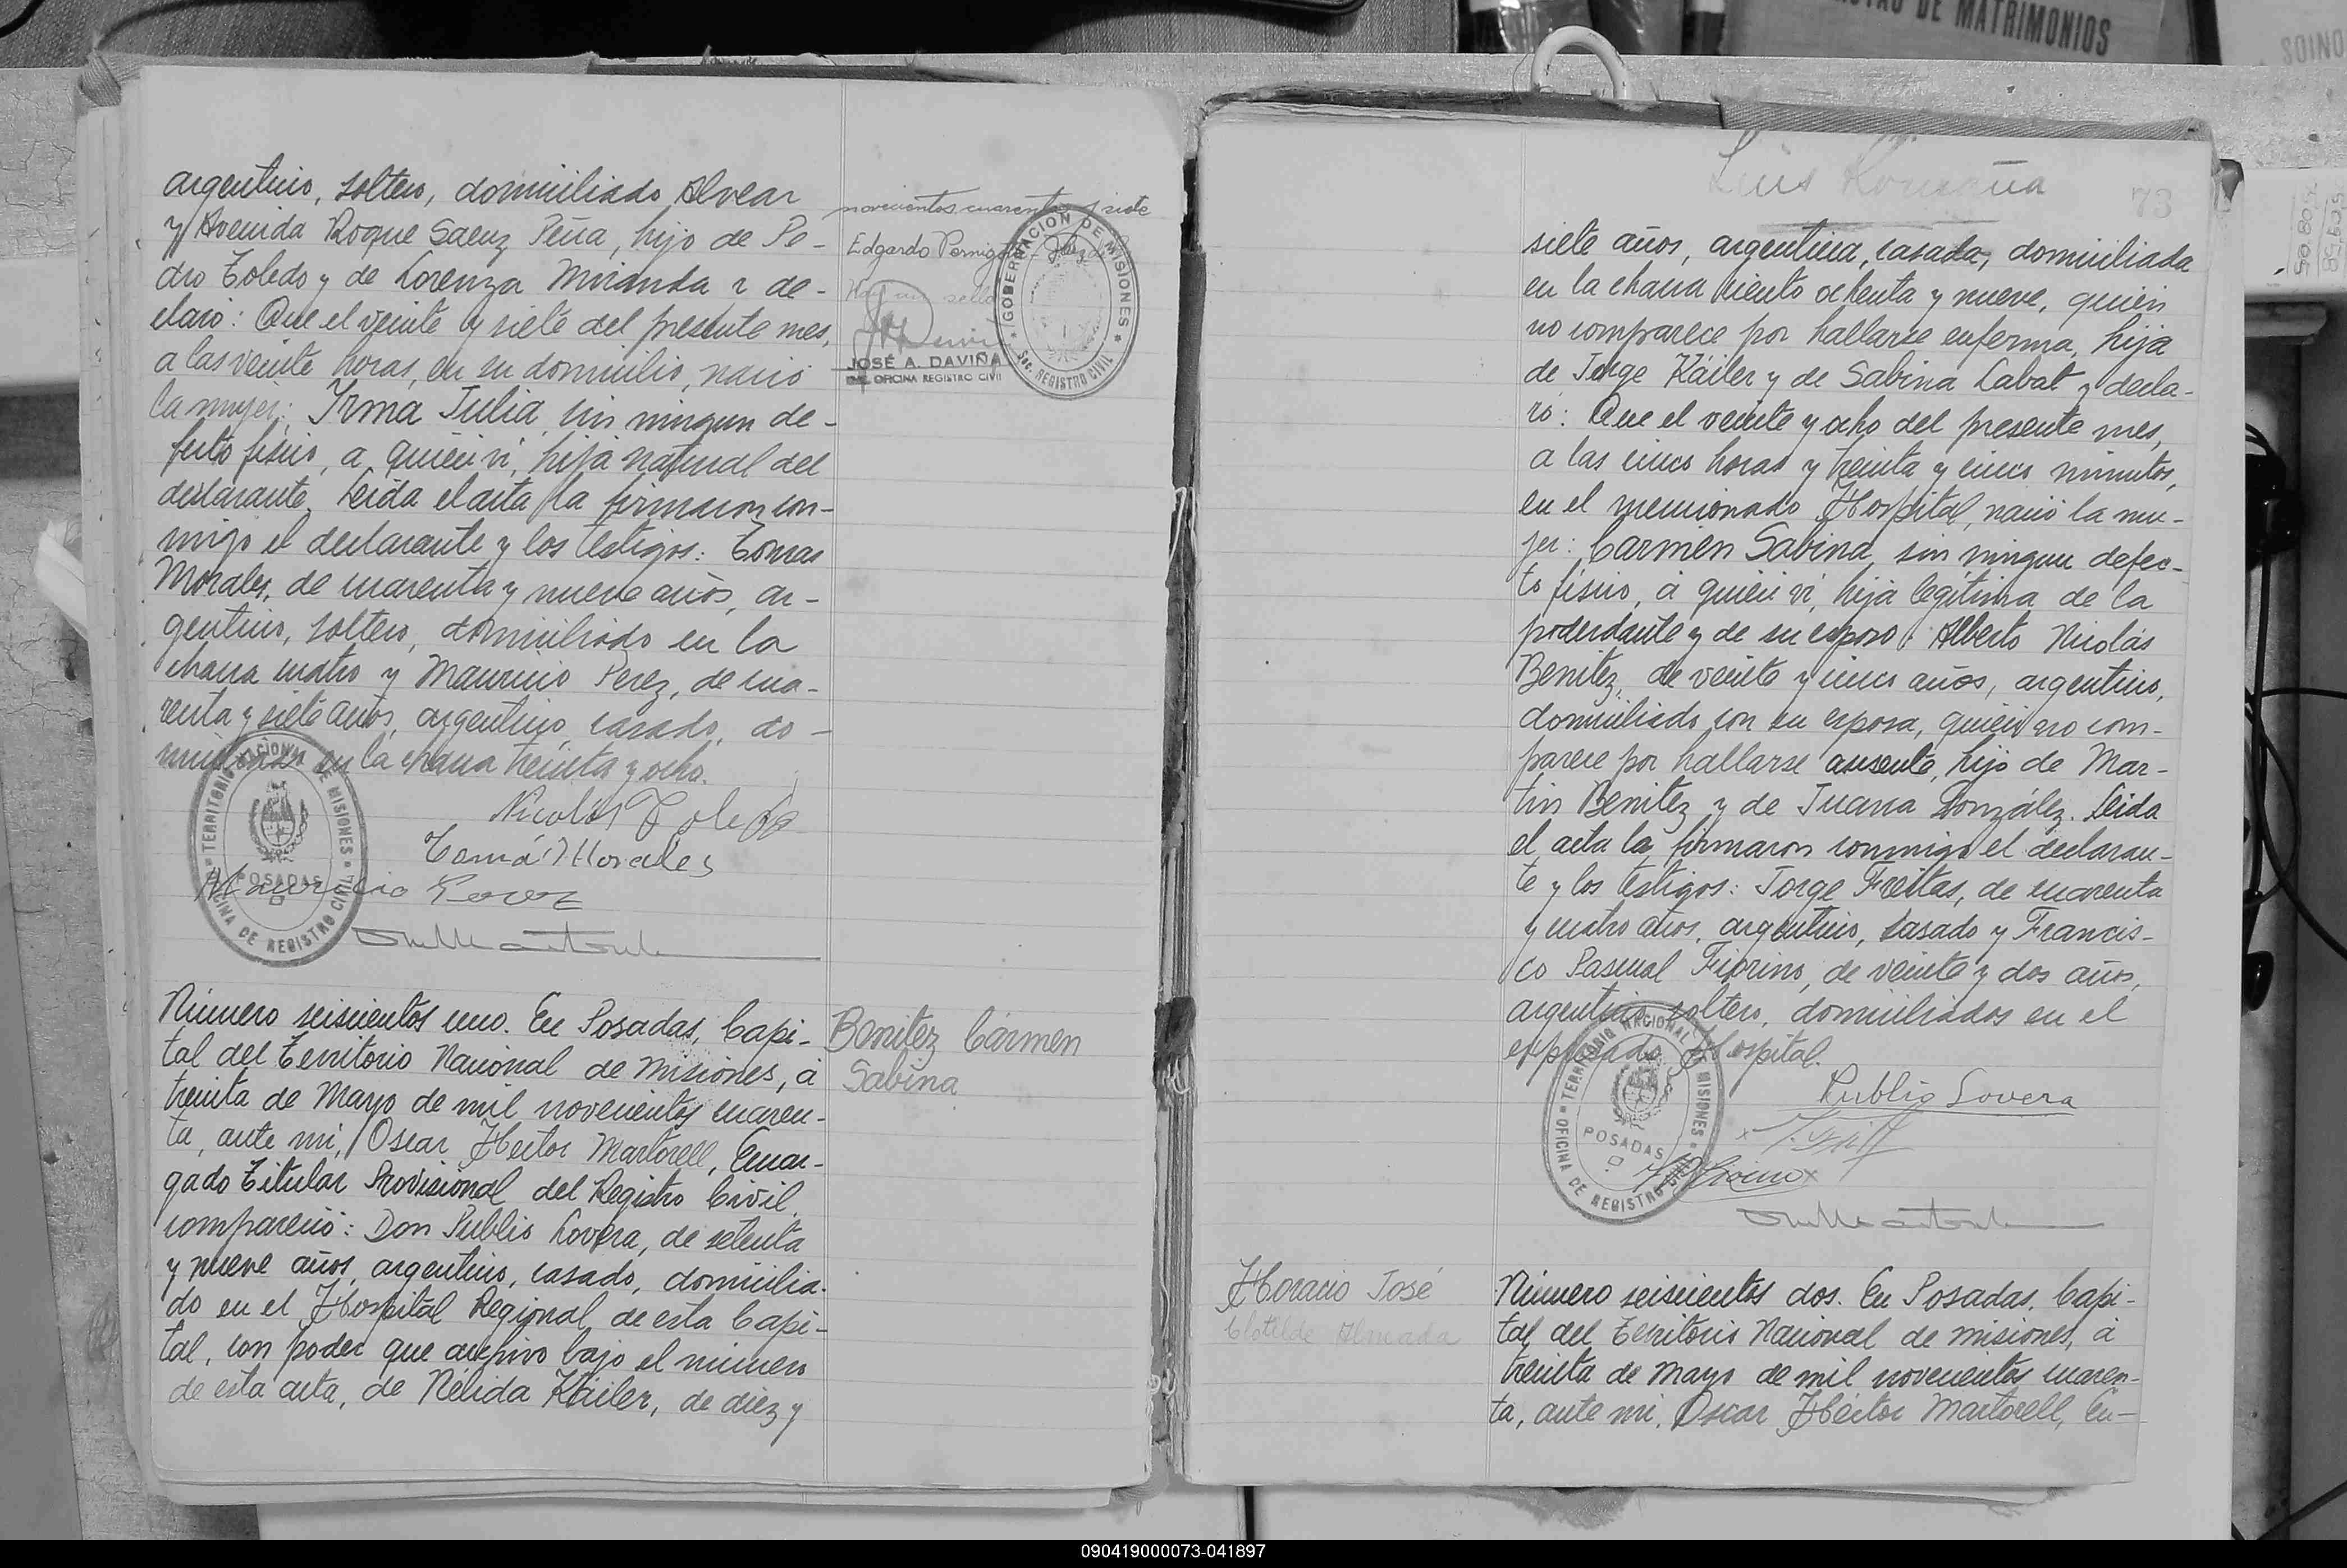 argentino, soltero, domiciliado Alvear
y Avenida Roque Saenz Peña, hijo de Pe-
dro Toledo y de Lorenza Miranda y de-
claró: Que el veinte y siete del presente mes,
a las veinte horas, en su domicilio, nació
la mujer: Irma Julia, sin ningun de-
fecto fisico, a quien vi, hija natural del
declarante. Leida el acta la firmaron con-
migo el declarante y los testigos: Tomas
Morales, de cuarenta y nueve años, ar-
gentino, soltero, domiciliado en la
chacra cuatro y Mauricio Perez, de cua-
renta y siete años, argentino, casado, do-
miciliado en la chacra treinta y ocho.
Nicolás Toledo
Tomás Morales
Mauricio Perez
TERRITORIO NACIONAL DE MISIONES
POSADAS
OFICINA DE REGISTRO CIVIL
novecientos cuarenta y siete
Edgardo Pernigotti
Hay un sello
JOSÉ A. DAVIÑA
OFICINA REGISTRO CIVIL
GOBERNACION DE MISIONES
Sec. REGISTRO CIVIL
Número seiscientos uno. En Posadas, Capi-
tal del Territorio Nacional de Misiones, á
treinta de Mayo de mil novecientos cuaren-
ta, ante mi, Oscar Héctor Martorell, Encar-
gado Titular Provisional del Registro Civil,
compareció: Don Publio Lovera, de setenta
y nueve años, argentino, casado, domicilia-
do en el Hospital Regional de esta Capi-
tal, con poder que archivo bajo el número
de esta acta, de Nélida Káiler, de diez y
Benitez Cármen
Sabina
73
siete años, argentina, casada, domiciliada
en la chacra ciento ochenta y nueve, quien
no comparece por hallarse enferma, hija
de Jorge Káiler y de Sabina Labat y decla-
ró: Que el veinte y ocho del presente mes,
a las cinco horas y treinta y cinco minutos,
en el mencionado Hospital, nació la mu-
jer: Cármen Sabina, sin ningun defec-
to fisico, á quien vi, hija legítima de la
poderdante y de su esposo: Alberto Nicolás
Benitez, de veinte y cinco años, argentino,
domiciliado con su esposa, quien no com-
parece por hallarse ausente, hijo de Mar-
tin Benitez y de Juana González. Leida
el acta la firmaron conmigo el declaran-
te y los testigos: Jorge Freitas, de cuarenta
y cuatro años, argentino, casado y Francis-
co Pascual Fiorino, de veinte y dos años,
argentino, soltero, domiciliados en el
expresado Hospital.
Publio Lovera
TERRITORIO NACIONAL DE MISIONES
POSADAS
OFICINA DE REGISTRO CIVIL
Horacio José
Clotilde Almada
Número seiscientos dos. En Posadas, Capi-
tal del Territorio Nacional de Misiones, á
treinta de Mayo de mil novecientos cuaren-
ta, ante mi, Oscar Héctor Martorell, En-
DE MATRIMONIOS
090419000073-041897